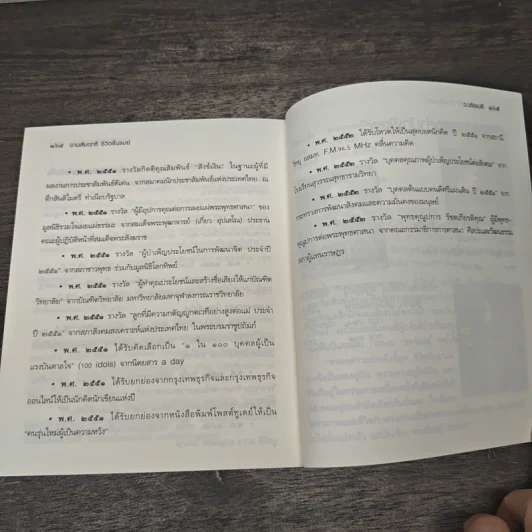 ๑๖๔ งานสัมฤทธิ์ ชีวิตรื่นรมย์
• พ.ศ. ๒๕๕๑ รางวัลกิตติคุณสัมพันธ์ "สังข์เงิน" ในฐานะผู้ที่มี
ผลงานการประชาสัมพันธ์ดีเด่น จากสมาคมนักประชาสัมพันธ์แห่งประเทศไทย ณ
ตึกสันติไมตรี ทำเนียบรัฐบาล
• พ.ศ. ๒๕๕๑ รางวัล "ผู้มีอุปการคุณต่อการเผยแผ่พระพุทธศาสนา" ของ
มูลนิธิรวมใจเผยแผ่ธรรม จากสมเด็จพระพุฒาจารย์ (เกี่ยว อุปเสโณ) ประธาน
คณะผู้ปฏิบัติหน้าที่สมเด็จพระสังฆราช
• พ.ศ. ๒๕๕๑ รางวัล "ผู้บำเพ็ญประโยชน์ในการพัฒนาจิต ประจำปี
๒๕๕๑" จากสภาชาวพุทธ ร่วมกับมูลนิธิโลกทิพย์
• พ.ศ. ๒๕๕๑ รางวัล "ผู้ทำคุณประโยชน์และสร้างชื่อเสียงให้แก่บัณฑิต
วิทยาลัย" จากบัณฑิตวิทยาลัย มหาวิทยาลัยมหาจุฬาลงกรณราชวิทยาลัย
• พ.ศ. ๒๕๕๑ รางวัล "ลูกที่มีความกตัญญูกตเวทีอย่างสูงต่อแม่ ประจำ
ปี ๒๕๕๑" จากสภาสังคมสงเคราะห์แห่งประเทศไทย ในพระบรมราชูปถัมภ์
• พ.ศ. ๒๕๕๑ ได้รับคัดเลือกเป็น "๑ ใน ๑๐๐ บุคคลผู้เป็น
แรงบันดาลใจ" (100 idols) จากนิตยสาร a day
• พ.ศ. ๒๕๕๑ ได้รับยกย่องจากกรุงเทพธุรกิจและกรุงเทพธุรกิจ
ออนไลน์ให้เป็นนักคิดนักเขียนแห่งปี
• พ.ศ. ๒๕๕๑ ได้รับยกย่องจากหนังสือพิมพ์โพสต์ทูเดย์ให้เป็น
"คนรุ่นใหม่ผู้เป็นความหวัง"
ว.วชิรเมธี ๑๖๕
• พ.ศ. ๒๕๕๒ ได้รับโหวตให้เป็นสุดยอดนักคิด ปี ๒๕๕๑ จากสถานี
วิทยุ อสมท. F.M.96.5 MHz คลื่นความคิด
• พ.ศ. ๒๕๕๒ รางวัล "บุคคลคุณภาพผู้บำเพ็ญประโยชน์ต่อสังคม" จาก
โรงเรียนสุวรรณสุทธารามวิทยา
• พ.ศ. ๒๕๕๒ รางวัล "บุคคลต้นแบบคนดีศรีแผ่นดิน ปี ๒๕๕๒" จาก
กระทรวงการพัฒนาสังคมและความมั่นคงของมนุษย์
• พ.ศ. ๒๕๕๒ รางวัล "พุทธคุณูปการ รัชตเกียรติคุณ" ผู้มีพุทธ-
คุณูปการต่อพระพุทธศาสนา จากคณะกรรมาธิการการศาสนา ศิลปะและวัฒนธรรม
สภาผู้แทนราษฎร